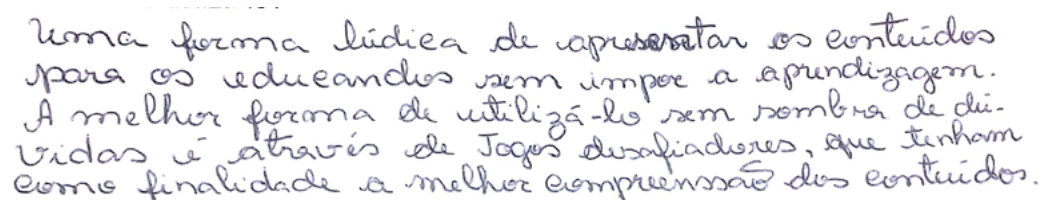 Uma forma lúdica de apresentar os conteúdos
para os educandos sem impor a aprendizagem.
A melhor forma de utilizá-lo sem sombra de dú-
vidas é através de Jogos desafiadores, que tenham
como finalidade a melhor compreenssão dos conteúdos.